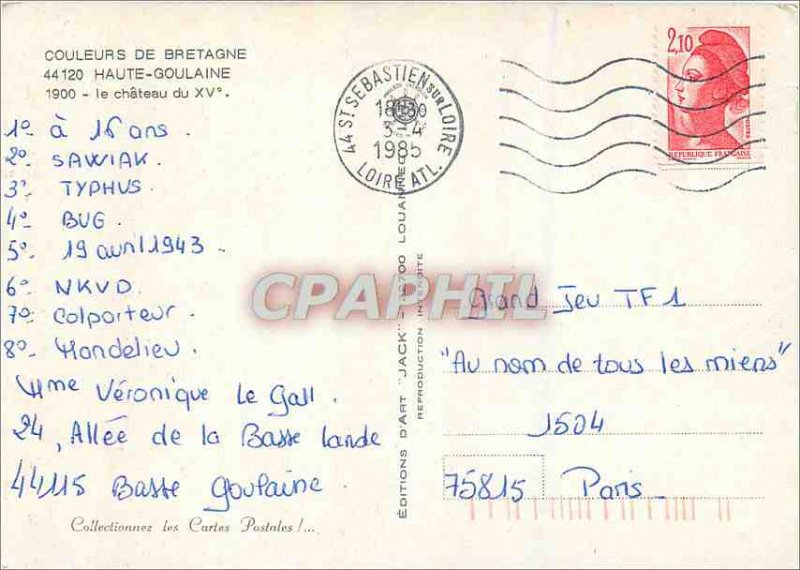 COULEURS DE BRETAGNE
44120 HAUTE-GOULAINE
1900 - le château du XV°.
1º_ à 16 ans.
2º_ SAWIAK.
3º_ TYPHUS.
4º_ BUG.
5º_ 19 avril 1943.
6º_ NKVD.
7º_ Colporteur.
8º_ Mandelieu.
Mme Véronique Le Gall.
24, Allée de la Basse Lande
44115 Basse Goulaine.
Collectionnez les Cartes Postales !...
44 ST SEBASTIEN SUR LOIRE
18H30
3-4
1985
LOIRE ATL.
2,10
REPUBLIQUE FRANÇAISE
EDITIONS D'ART "JACK" - 22700 LOUANNEC
REPRODUCTION INTERDITE
CPAPHIL
Grand Jeu TF1
"Au nom de tous les miens"
1504
75815 Paris_